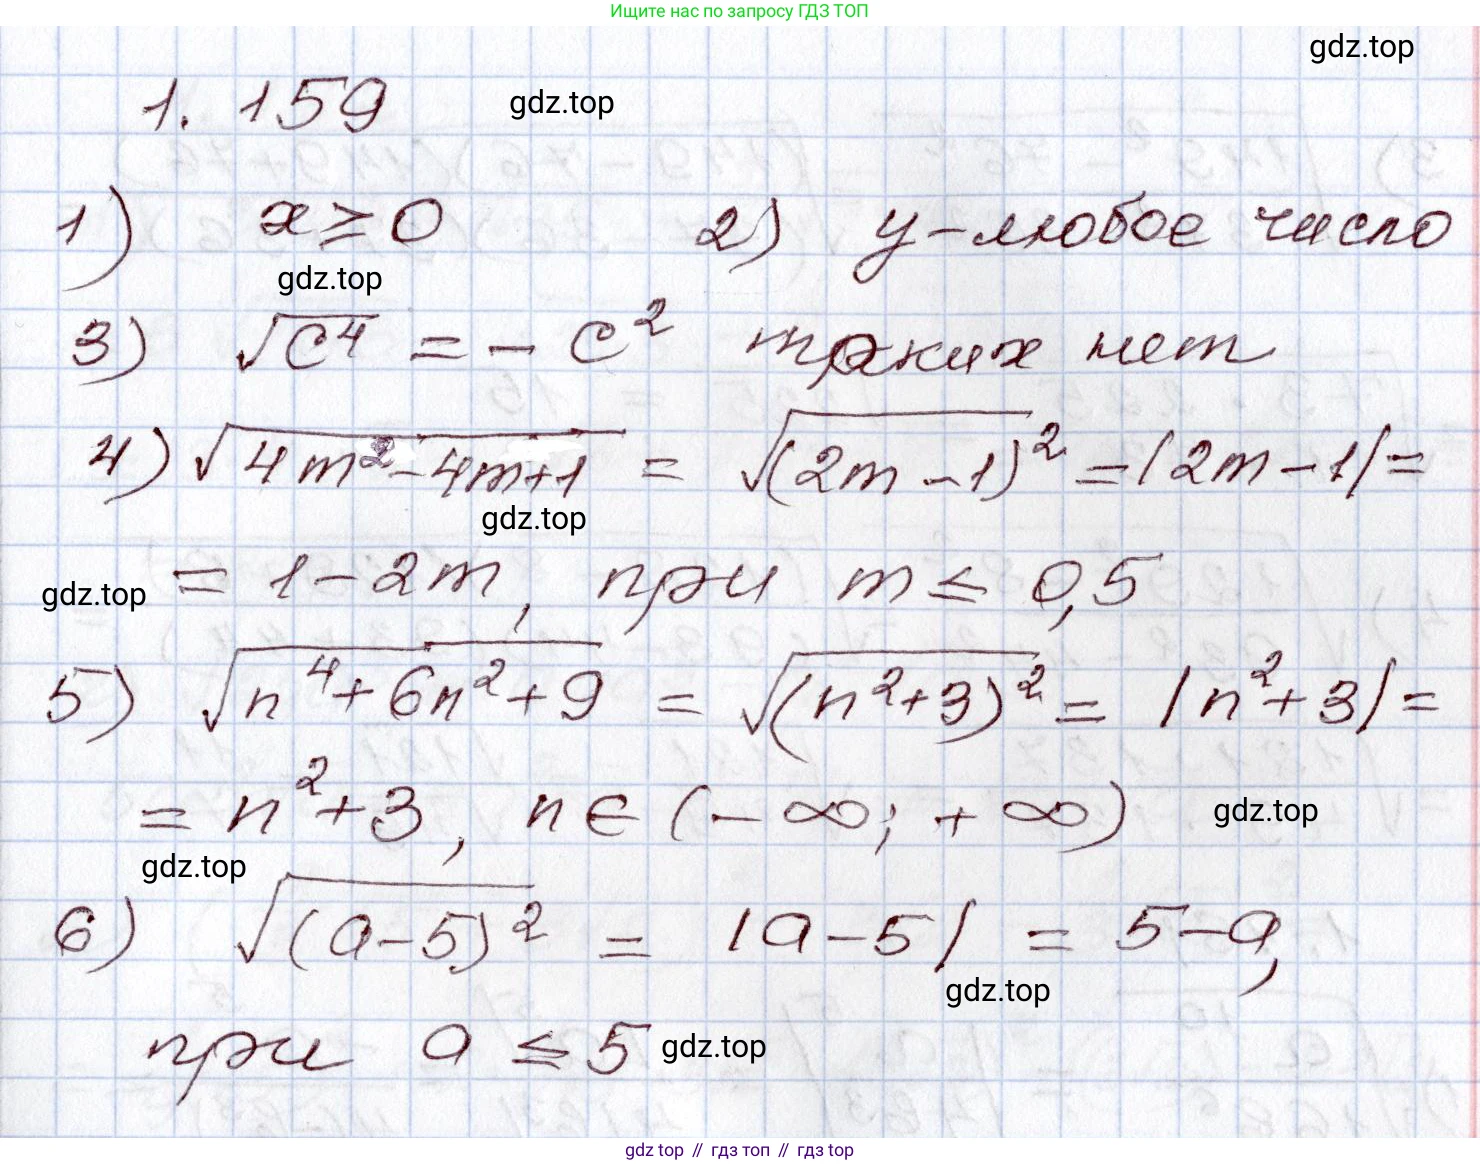 Ищите нас по запросу ГДЗ ТОП
gdz.top
1.159 gdz.top
1) x ≥ 0 2) y – любое число
gdz.top
3) √c⁴ = – c² таких нет
4) √4m² – 4m + 1 = √(2m – 1)² = |2m – 1| =
gdz.top
= 1 – 2m, при m ≤ 0,5
gdz.top
5) √n⁴ + 6n² + 9 = √(n² + 3)² = |n² + 3| =
= n² + 3, n ∈ (– ∞; + ∞) gdz.top
gdz.top
6) √(a – 5)² = |a – 5| = 5 – a,
gdz.top
при a ≤ 5 gdz.top
gdz top // гдз топ // гдз top